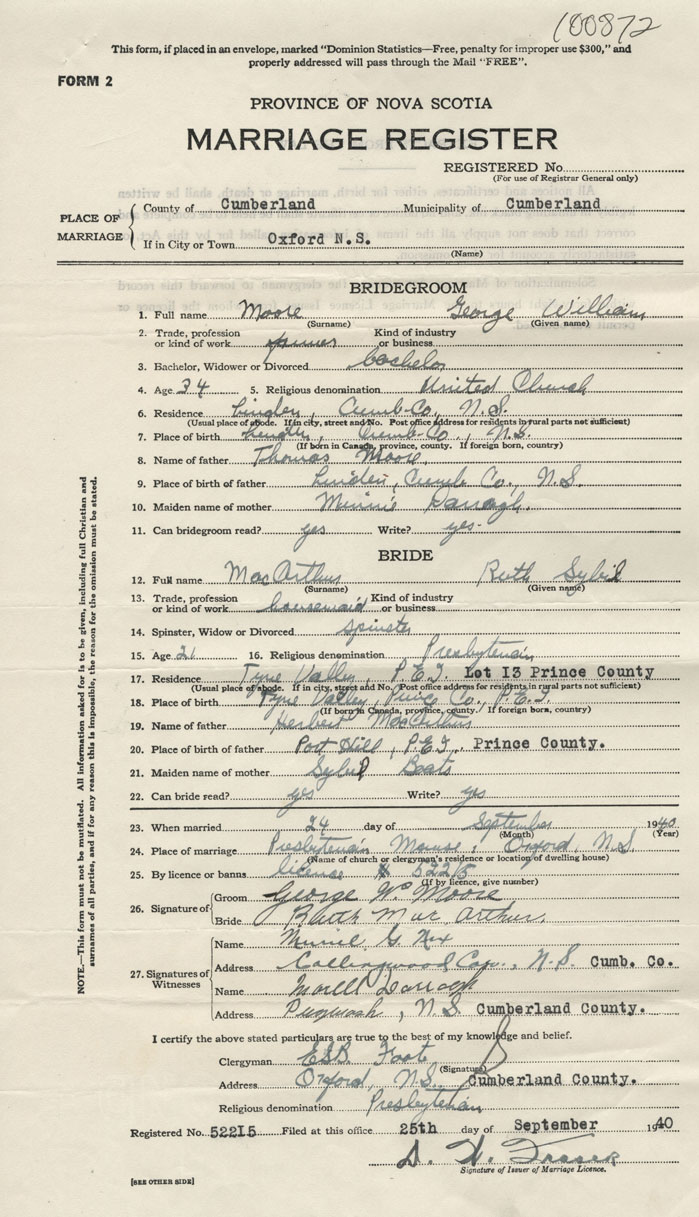 100872
This form, if placed in an envelope, marked "Dominion Statistics—Free, penalty for improper use $300," and
properly addressed will pass through the Mail "FREE".
FORM 2
PROVINCE OF NOVA SCOTIA
MARRIAGE REGISTER
REGISTERED No.
(For use of Registrar General only)
PLACE OF MARRIAGE
County of Cumberland Municipality of Cumberland
If in City or Town Oxford N.S.
(Name)
BRIDEGROOM
1. Full name Moore George William
(Surname) (Given name)
2. Trade, profession or kind of work Kind of industry or business
3. Bachelor, Widower or Divorced bachelor
4. Age 34 5. Religious denomination United Church
6. Residence Linden, Cumb. Co., N.S.
(Usual place of abode. If in city, street and No. Post office address for residents in rural parts not sufficient)
7. Place of birth Linden, Cumb. Co., N.S.
(If born in Canada, province, county. If foreign born, country)
8. Name of father Thomas Moore
9. Place of birth of father Linden, Cumb. Co., N.S.
10. Maiden name of mother Minnie Darragh.
11. Can bridegroom read? yes Write? yes.
BRIDE
12. Full name MacArthur Ruth Sybil
(Surname) (Given name)
13. Trade, profession or kind of work housemaid Kind of industry or business
14. Spinster, Widow or Divorced spinster
15. Age 21 16. Religious denomination Presbyterian
17. Residence Tyne Valley, P.E.I. Lot 13 Prince County
(Usual place of abode. If in city, street and No. Post office address for residents in rural parts not sufficient)
18. Place of birth Tyne Valley, Prince Co., P.E.I.
(If born in Canada, province, county. If foreign born, country)
19. Name of father Herbert MacArthur
20. Place of birth of father Port Hill, P.E.I. Prince County.
21. Maiden name of mother Sybil Boats
22. Can bride read? yes Write? yes
23. When married 24 day of September 1940
(Month) (Year)
24. Place of marriage Presbyterian Manse, Oxford, N.S.
(Name of church or clergyman's residence or location of dwelling house)
25. By licence or banns license # 52215
(If by licence, give number)
26. Signature of Groom George Wm Moore
Bride Ruth Mac Arthur.
27. Signatures of Witnesses
Name G.
Address Collingwood Cor., N.S. Cumb. Co.
Name Darragh
Address Pugwash, N.S. Cumberland County.
I certify the above stated particulars are true to the best of my knowledge and belief.
Clergyman E.S.B. Foote
(Signature)
Address Oxford, N.S. Cumberland County.
Religious denomination Presbyterian
Registered No. 52215 Filed at this office 25th day of September 1940
Fraser
Signature of Issuer of Marriage Licence.
[SEE OTHER SIDE]
NOTE.—This form must not be mutilated. All information asked for is to be given, including full Christian and
surnames of all parties, and if for any reason this is impossible, the reason for the omission must be stated.